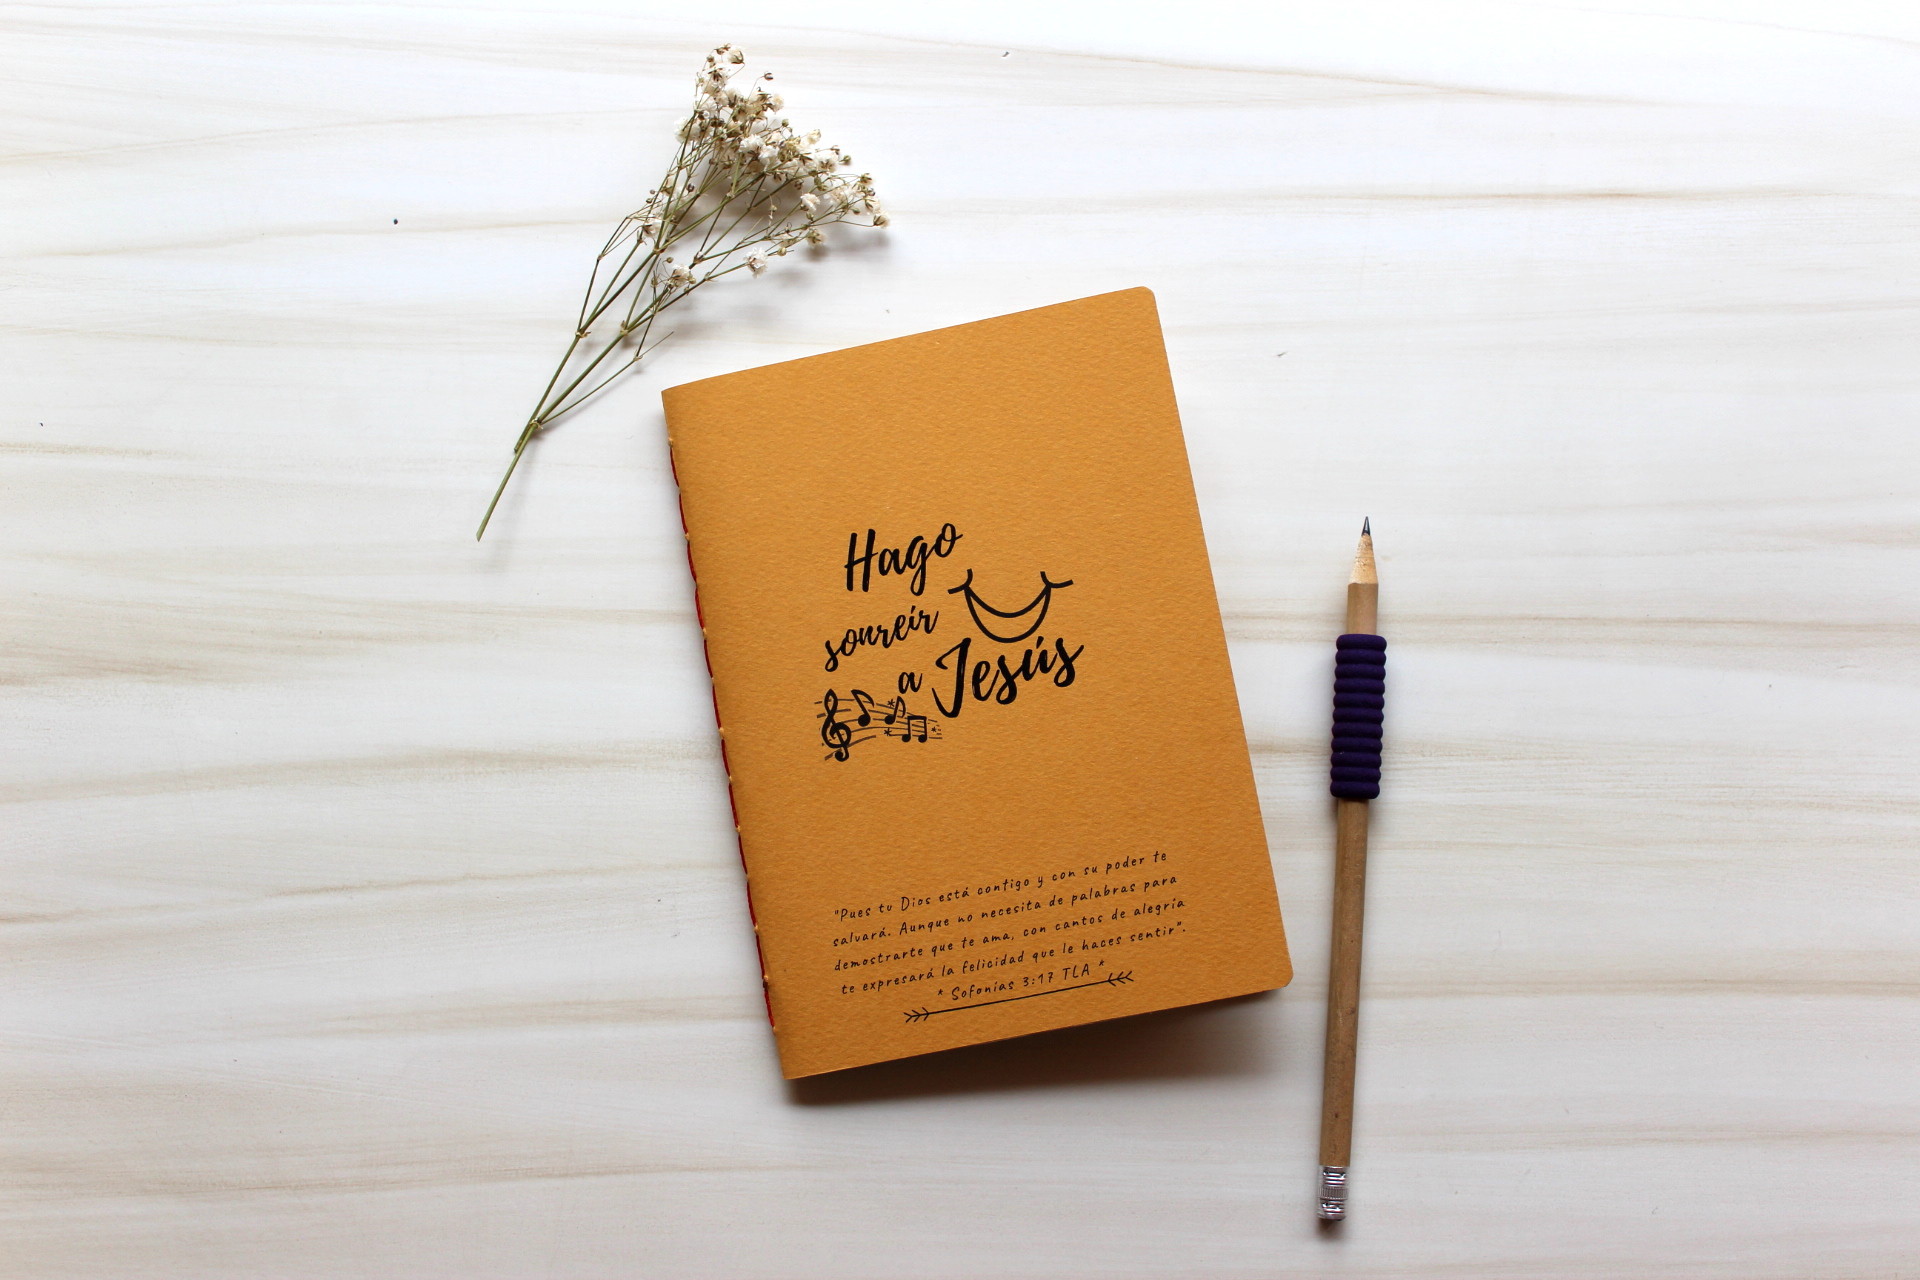 Hago
sonreír
a Jesús
"Pues tu Dios está contigo y con su poder te
salvará. Aunque no necesita de palabras para
demostrarte que te ama, con cantos de alegría
te expresará la felicidad que le haces sentir".
* Sofonías 3:17 TLA *